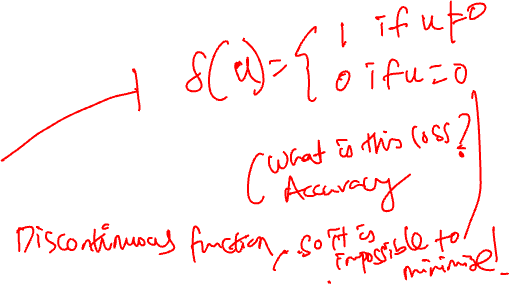 δ(u) = { 1 if u ≠ 0
0 if u = 0
(What is this loss?
Accuracy
Discontinuous function, so it is
impossible to
minimise!